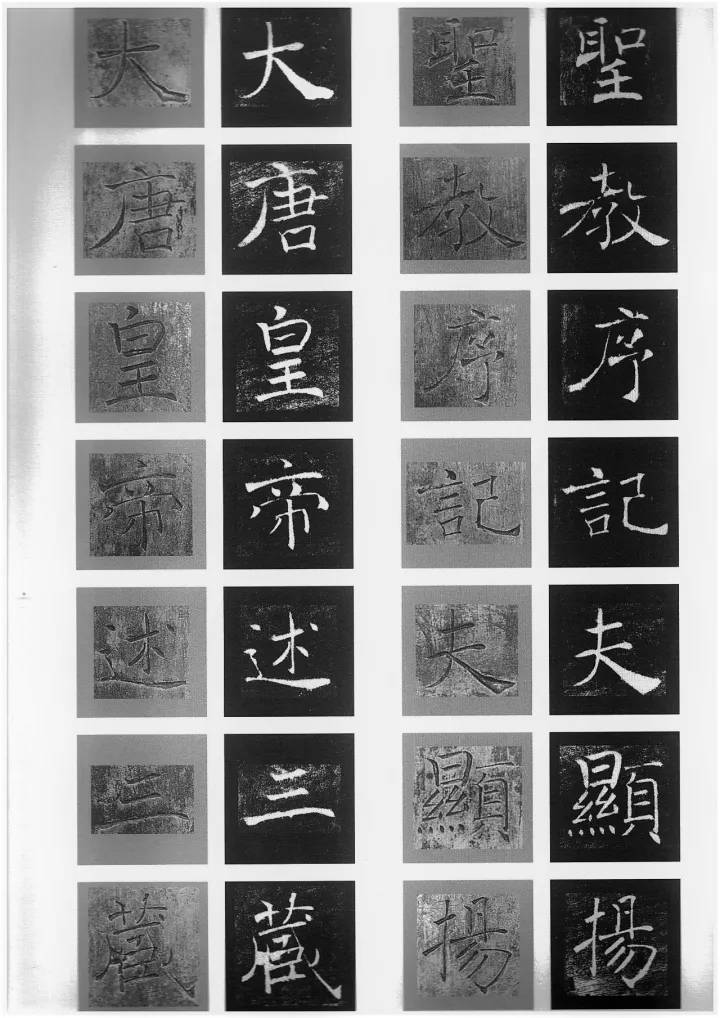 大唐皇帝述三藏
大唐皇帝述三藏
聖教序記夫顯揚
聖教序記夫顯揚